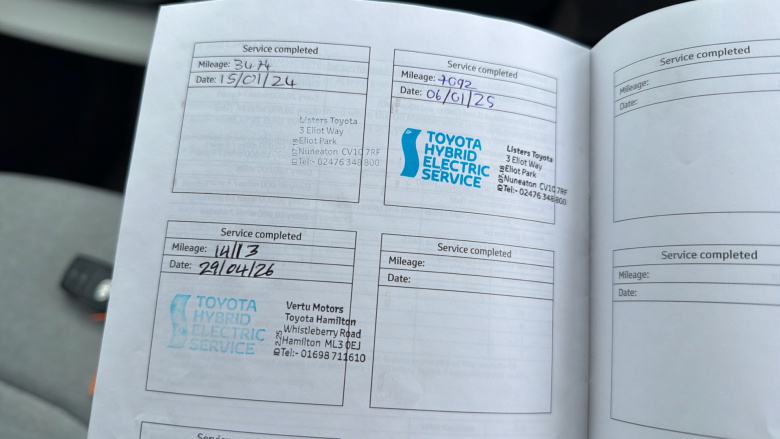 Service completed
Mileage: 3474
Date: 15/01/24
Listers Toyota
3 Eliot Way
Eliot Park
Nuneaton CV10 7RF
Tel:- 02476 348 800
Service completed
Mileage: 7092
Date: 06/01/25
TOYOTA
HYBRID
ELECTRIC
SERVICE
Listers Toyota
3 Eliot Way
Eliot Park
Nuneaton CV10 7RF
Tel:- 02476 348 800
Service completed
Mileage:
Date: 29/04/26
TOYOTA
HYBRID
ELECTRIC
SERVICE
Vertu Motors
Toyota Hamilton
Whistleberry Road
Hamilton ML3 0EJ
Tel:- 01698 711610
Service completed
Mileage:
Date:
Service completed
Mileage:
Date:
Service completed
Mileage:
Date: